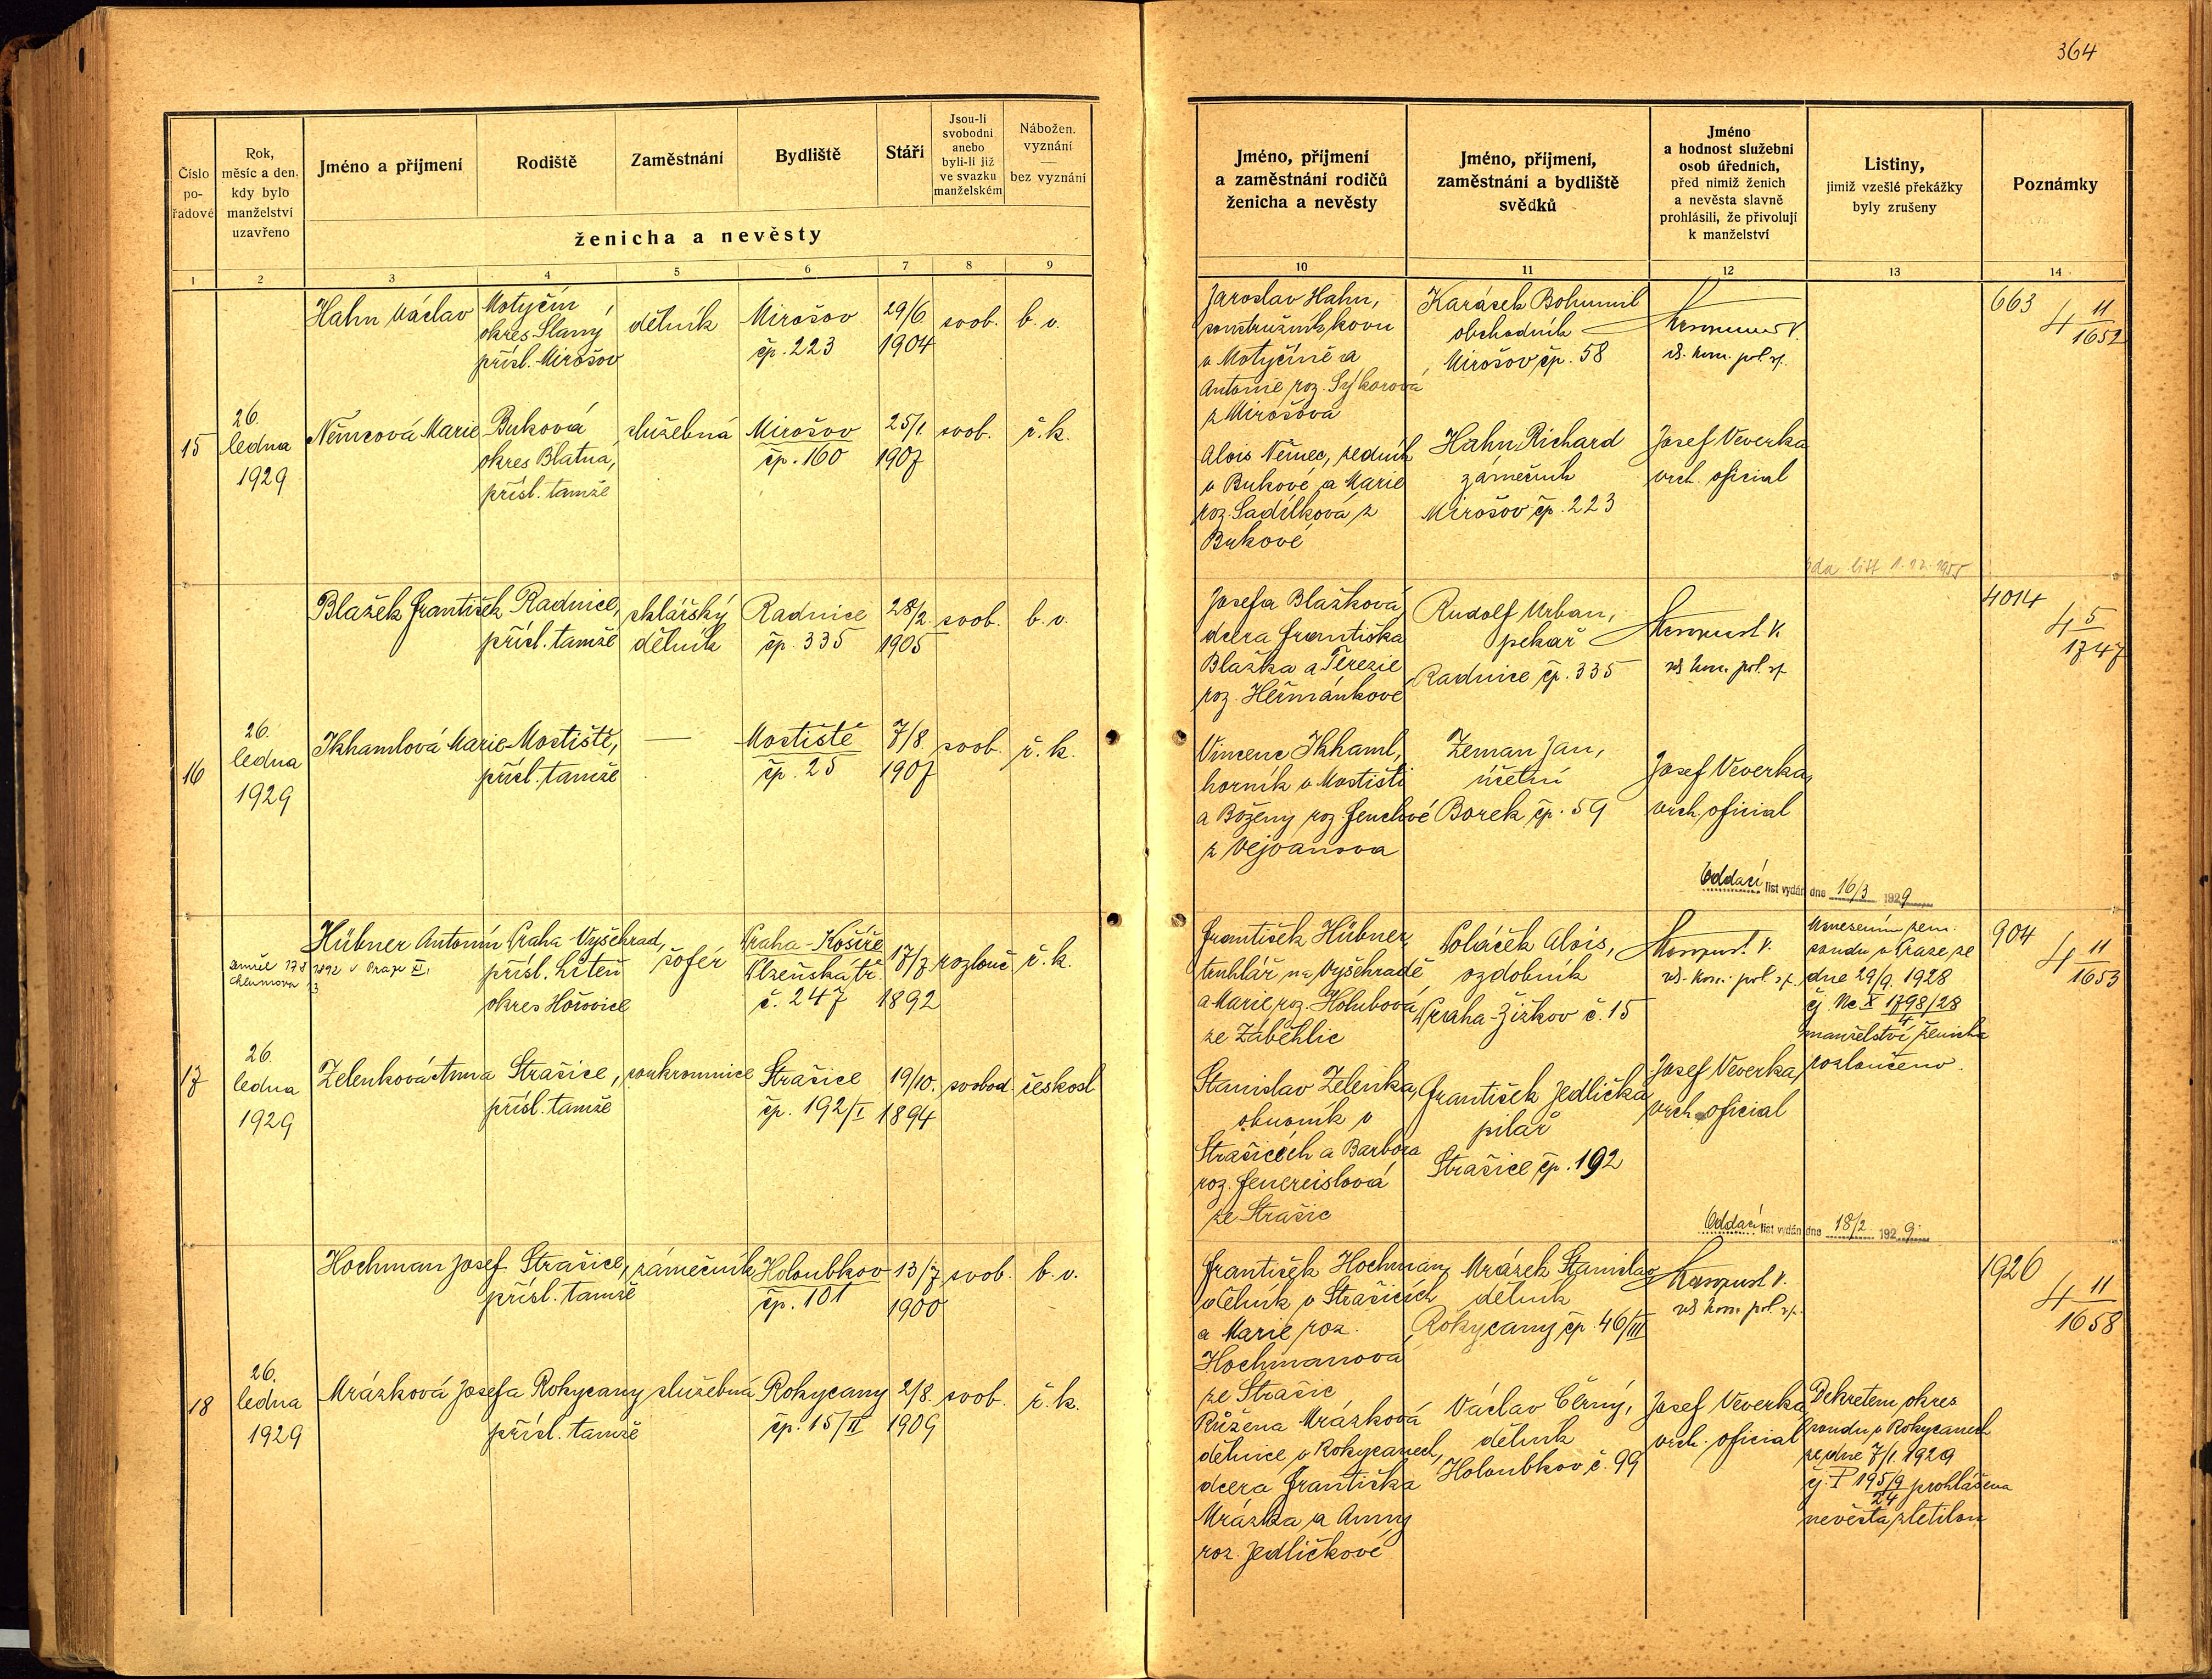 364
Číslo
po-
řadové
Rok,
měsíc a den,
kdy bylo
manželství
uzavřeno
Jméno a příjmení
Rodiště
Zaměstnání
Bydliště
Stáří
Jsou-li
svobodni
anebo
byli-li již
ve svazku
manželském
Nábožen.
vyznání
—
bez vyznání
ženicha a nevěsty
1 2 3 4 5 6 7 8 9
Jméno, příjmení
a zaměstnání rodičů
ženicha a nevěsty
Jméno, příjmení,
zaměstnání a bydliště
svědků
Jméno
a hodnost služební
osob úředních,
před nimiž ženich
a nevěsta slavně
prohlásili, že přivolují
k manželství
Listiny,
jimiž vzešlé překážky
byly zrušeny
Poznámky
10 11 12 13 14
Hahn Václav
Motyčín
okres Slaný
přísl. Mirošov
dělník
Mirošov
čp. 223
29/6.
1904
svob.
b. v.
15
26.
ledna
1929
Němcová Marie
Buková
okres Blatná,
přísl. tamže
služebná
Mirošov
čp. 160
25/1.
1907
svob.
ř. k.
Jaroslav Hahn,
soustružník kovu
v Motyčíně a
Antonie roz. Sýkorová
z Mirošova
Alois Němec, zedník
v Bukové a Marie
roz. Sadílková z
Bukové
Karásek Bohumil
obchodník
Mirošov čp. 58
Hahn Richard
zámečník
Mirošov čp. 223
Josef Veverka
vrch. oficial
663
4 11
1652
list 1. 12. 1955
Blažek František
Radnice,
přísl. tamže
sklářský
dělník
Radnice
čp. 335
28/2.
1905
svob.
b. v.
16
26.
ledna
1929
Ikhamlová Marie
Mostiště,
přísl. tamže
—
Mostiště
čp. 25
7/8.
1907
svob.
ř. k.
Josefa Blažková
dcera Františka
Blažka a Terezie
roz. Heřmánkové
Vincenc Ikhaml,
horník v Mostišti
a Boženy roz.
z Vejvanova
Rudolf Urban,
pekař
Radnice čp. 335
Zeman Jan,
účetní
Borek čp. 59
kom. pol. sp.
Josef Veverka,
vrch. oficial
4014
4 5
1747
Oddací list vydán dne 16/3 1929
Hübner Antonín
Praha-Vyšehrad,
přísl. Liteň
okres Hořovice
šofér
Praha-Košíře
Plzeňská tř.
č. 247
17/7
1892
rozlouč
ř. k.
17
26.
ledna
1929
Zelenková Anna
Strašice,
přísl. tamže
soukromnice
Strašice
čp. 192/I
19/10.
1894
svobod.
českosl.
František Hübner,
truhlář na Vyšehradě
a Marie roz. Holubová
ze Záběhlic
Stanislav Zelenka,
obuvník v
Strašicích a Barbora
roz. Feuereislová
ze Strašic
Poláček Alois,
ozdobník
Praha-Žižkov č. 15
František Jedlička
pilař
Strašice čp. 192
kom. pol. sp.
Josef Veverka,
vrch. oficial
Usnesením zem.
soudu v Praze ze
dne 29/9. 1928
čj. Nc X 1798/28
4
manželství ženicha
rozloučeno.
904
4 11
1653
Oddací list vydán dne 18/2 1929
Hochman Josef
Strašice,
přísl. tamže
zámečník
Holoubkov
čp. 101
13/7
1900
svob.
b. v.
18
26.
ledna
1929
Mrázková Josefa
Rokycany
přísl. tamže
služebná
Rokycany
čp. 15/II
2/8.
1909
svob.
ř. k.
František Hochman,
dělník v Strašicích
a Marie roz.
Hochmanova
ze Strašic
Růžena Mrázková
dělnice v Rokycanech,
dcera Františka
Mrázka a Anny
roz. Jedličkové
Mrázek Stanislav
dělník
Rokycany čp. 46/III
Václav Černý,
dělník
Holoubkov č. 99
kom. pol. sp.
Josef Veverka
vrch. oficial
Dekretem okres
soudu v Rokycanech
ze dne 7/1. 1929
čj. P 195/9 prohlášena
24
nevěsta zletilou
1926
4 11
1658